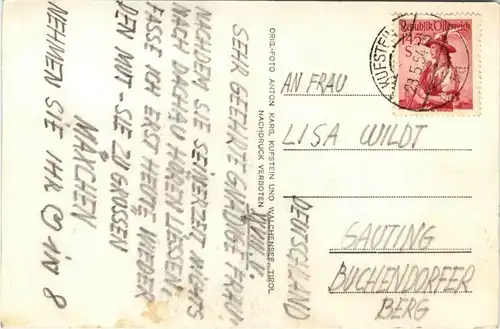 SEHR GEEHRTE GNÄDIGE FRAU
NACHDEM SIE SEINERZEIT NICHTS
NACH DACHAU HÖREN LIESSEN
FASSE ICH ERST HEUTE WIEDER
DEN MUT - SIE ZU GRÜSSEN
MÄXCHEN
NEHMEN SIE IHR IN 8
ORIG.-FOTO ANTON KARG, KUFSTEIN UND WALCHENSEE, TIROL
NACHDRUCK VERBOTEN
KUFSTEIN
Republik Österreich
AN FRAU
LISA WILDT
SAUTING
BUCHENDORFER
BERG
DEUTSCHLAND